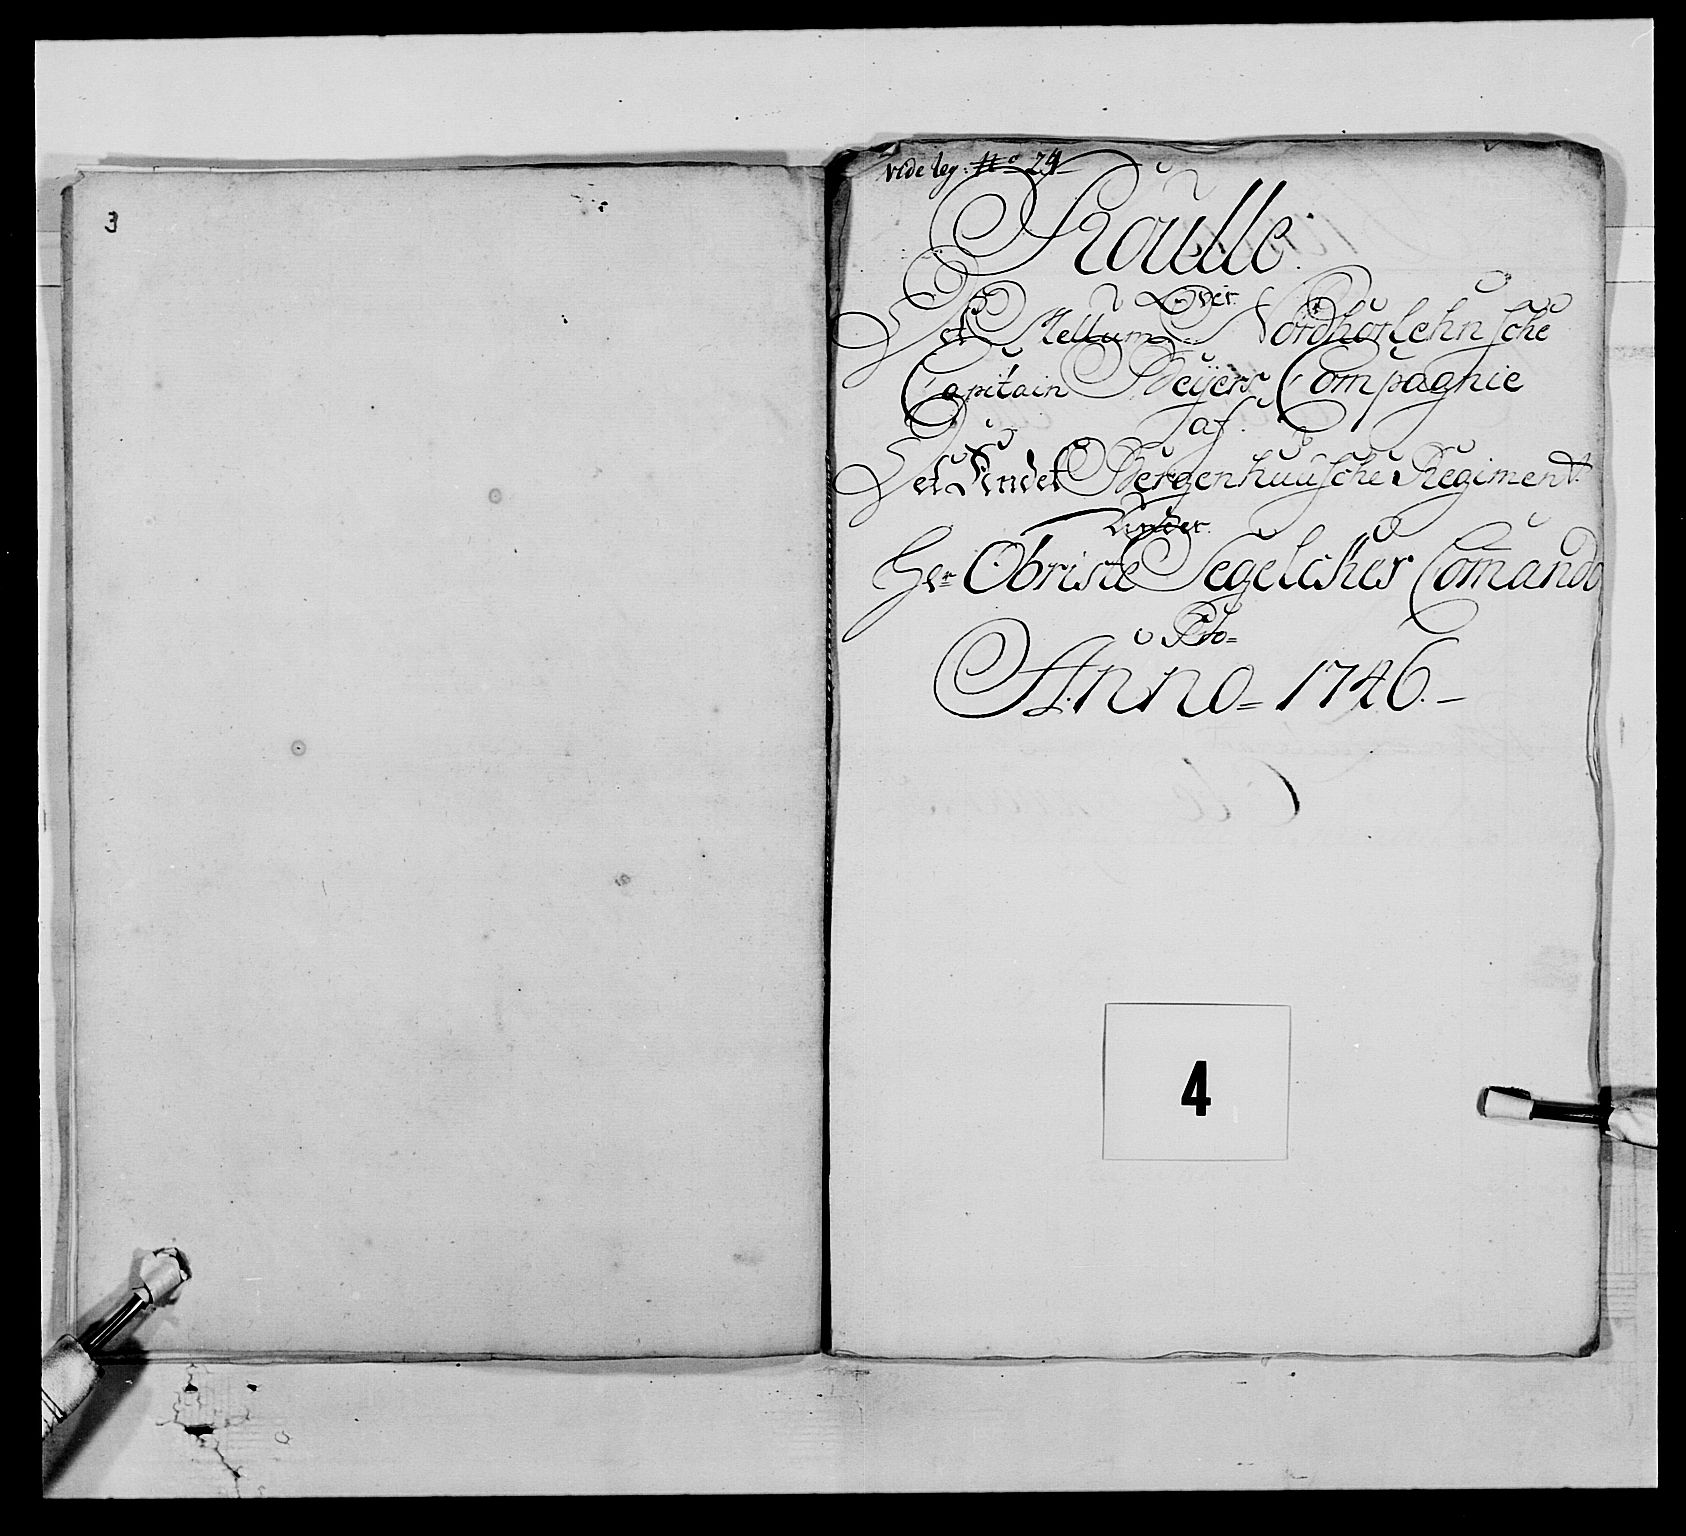 3
vide leg. No 24
Roulle
Over
Det Mellum Nordhorlehnsche
Capitain Beÿers Compagnie
af
Det Andet Bergenhuusche Regiment
Under
Hr Obriste Segelckes Comando
Pro
Anno 1746.
4